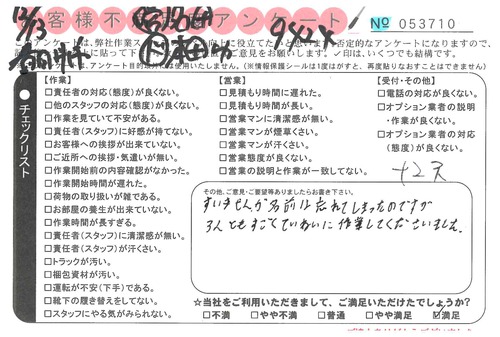 客様不満足アンケート
№ 053710
12/13
このアンケートは、弊社作業スタッフの
否定的なアンケートになりますので、
ご意見をお願いします。✓印は、いくつでも結構です。
使用いたしません。(※情報保護シールは1度はがすと、再度貼りなおすことはできません)
チェックリスト
【作業】
□責任者の対応(態度)が良くない。
□他のスタッフの対応(態度)が良くない。
□作業を見ていて不安がある。
□責任者(スタッフ)に好感が持てない。
□お客様への挨拶が出来ていない。
□ご近所への挨拶・気遣いが無い。
□作業開始前の内容確認がなかった。
□作業開始時間が遅れた。
□荷物の取り扱いが雑である。
□お部屋の養生が出来ていない。
□作業時間が長すぎる。
□責任者(スタッフ)に清潔感が無い。
□責任者(スタッフ)が汗くさい。
□トラックが汚い。
□梱包資材が汚い。
□運転が不安(下手)である。
□靴下の履き替えをしてない。
□スタッフにやる気がみられない。
【営業】
□見積もり時間に遅れた。
□見積もり時間が長い。
□営業マンに清潔感が無い。
□営業マンが煙草くさい。
□営業マンが汗くさい。
□営業態度が良くない。
□営業の説明と作業が一致してない。
【受付・その他】
□電話の対応が良くない。
□オプション業者の説明
・作業が良くない。
□オプション業者の対応
(態度)が良くない。
その他、ご意見・ご要望等ありましたらお書き下さい。
すいませんが名前は忘れてしまったのですが
3人ともすごくていねいに作業してくださいました。
☆当社をご利用いただきまして、ご満足いただけたでしょうか?
□不満 □やや不満 □普通 □やや満足 ☑満足